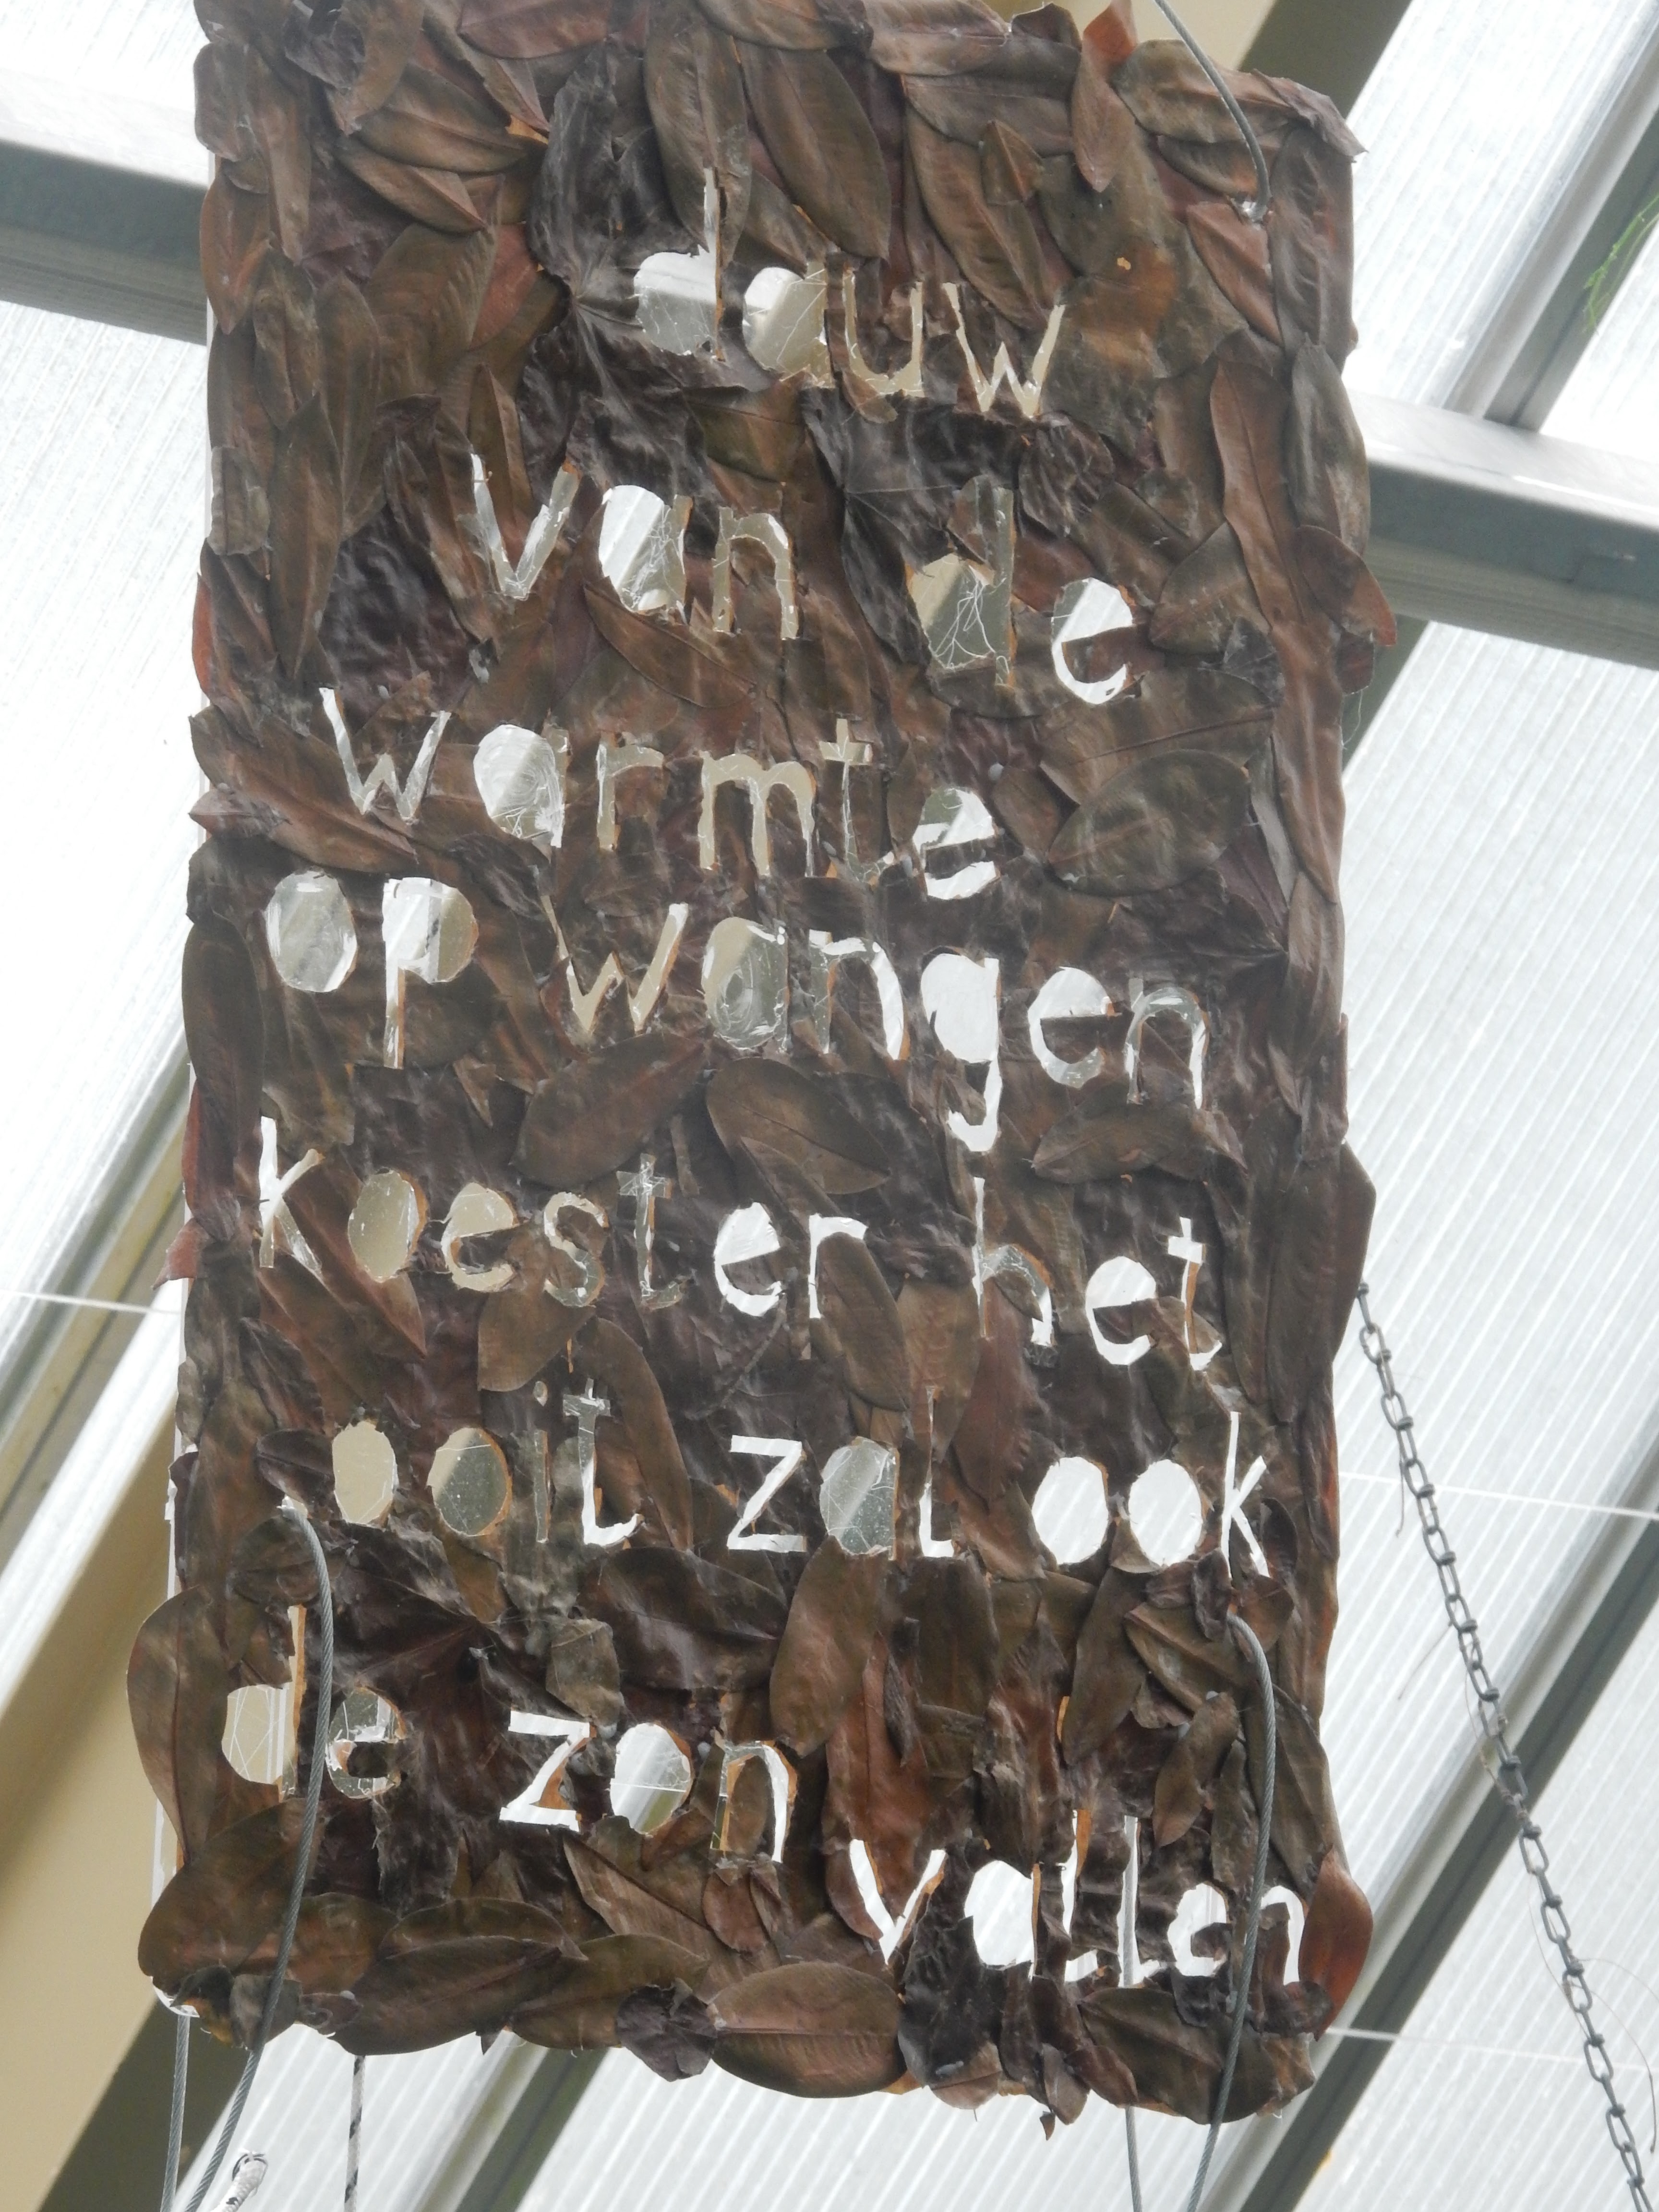 dauw
van de
warmte
op wangen
koester het
ooit zal ook
de zon
vallen